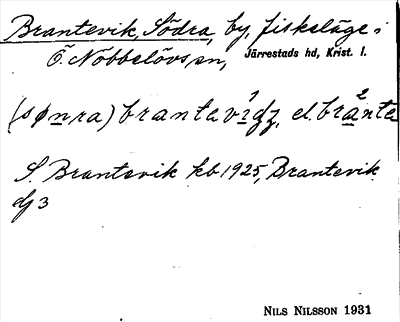 Brantevik, Södra, by, fiskeläge i
Ö. Nöbbelövs sn, Järrestads hd, Krist. l.
(sønra) brantavı¹dʒ, el. bra²nta
S. Brantevik kb 1925, Brantevik
dj 3
NILS NILSSON 1931